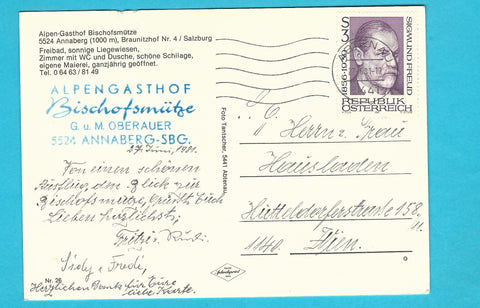 Alpen-Gasthof Bischofsmütze
5524 Annaberg (1000 m), Braunitzhof Nr. 4 / Salzburg
Freibad, sonnige Liegewiesen,
Zimmer mit WC und Dusche, schöne Schilage,
eigene Maierei, ganzjährig geöffnet.
Tel. 0 64 63 / 81 49
ALPENGASTHOF
Bischofsmütze
G. u. M. OBERAUER
5524 ANNABERG-SBG.
27. Juni, 1981.
Von einem schönen
Ausflug den Blick zur
Bischofsmütze grüßt Euch
Lieben herzlichst,
Fritzi u. Rudi.
Sidy u Fredi,
Herzlichen Dank für Eure
liebe Karte.
Nr. 26
Foto Tantscher, 5441 Abtenau
S 3
SIGMUND FREUD
1856-1939
REPUBLIK
ÖSTERREICH
Herrn u. Frau
Hausladen
Hütteldorferstraße 158
1140. Wien.